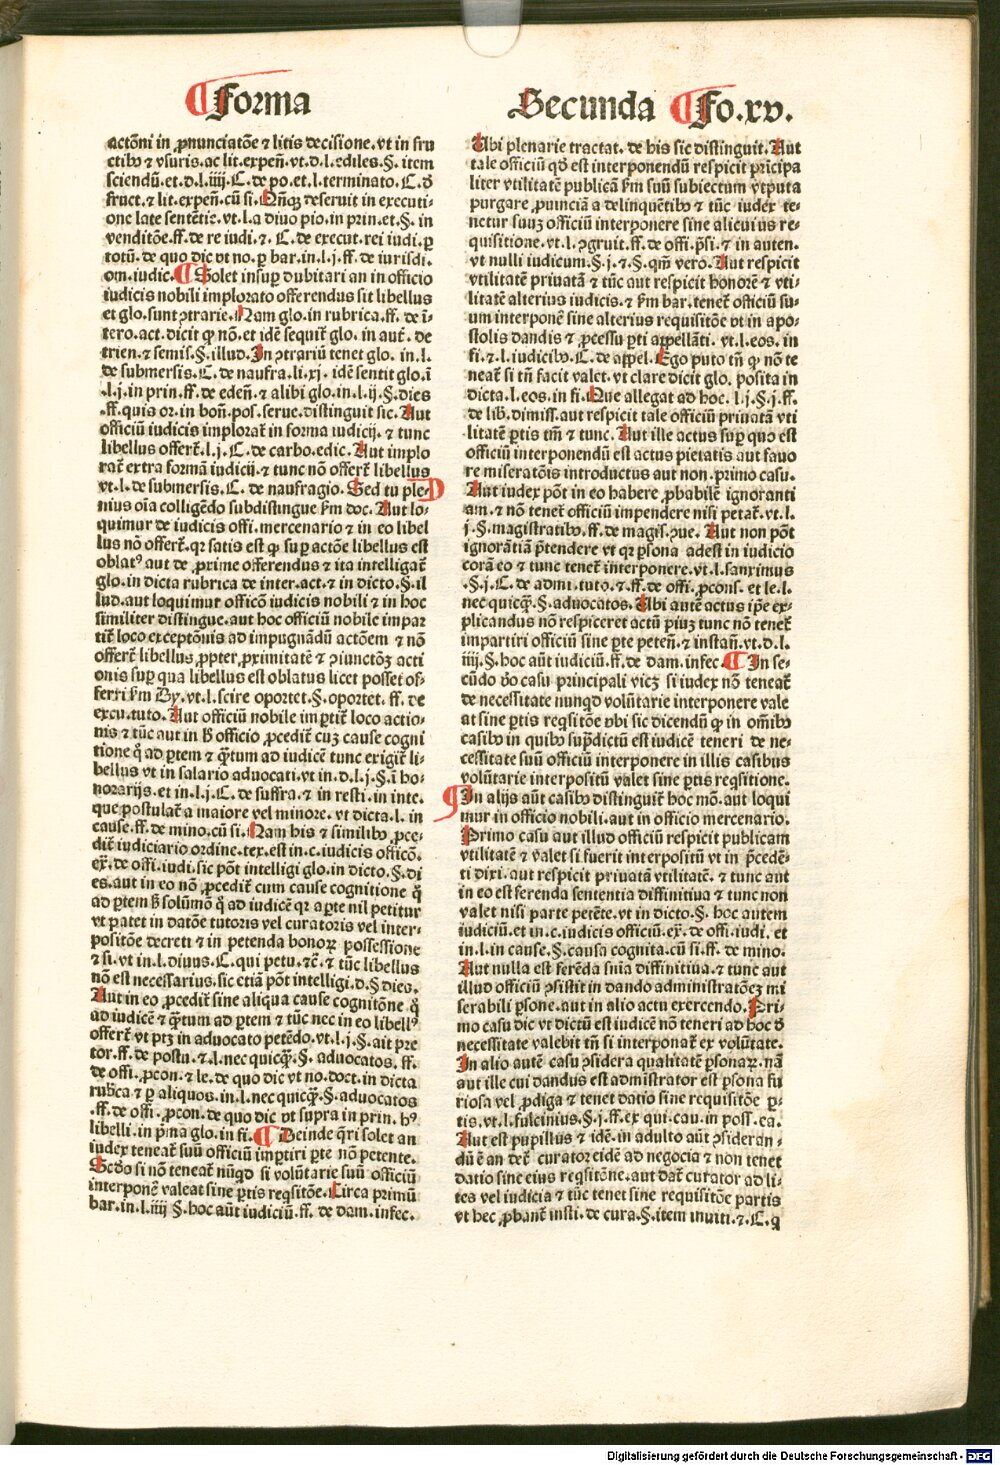 ¶Forma
Secunda ¶Fo.xv.
actōni in ꝓnunciatōe ⁊ litis decisione. vt in fru
ctibꝰ ⁊ vsuris. ac lit. expeñ. vt. d. l. ediles. §. item
sciendū. et. d. l. iiij. C. de po. et. l. terminato. C. ð
fruct. ⁊ lit. expeñ. cū si. Nñqꝫ deseruit in executi-
one late sentētie. vt. l. a diuo pio. in prin. et. §. in
venditōe. ff. de re iudi. ⁊. C. de execut. rei iudi. ꝑ
totū. de quo dic vt no. ꝑ bar. in. l. j. ff. de iurisdi.
om. iudic. ¶ Solet insuꝑ dubitari an in officio
iudicis nobili implorato offerendus sit libellus
et glo. sunt ꝯtrarie. Nam glo. in rubrica. ff. de ī-
tero. act. dicit ꝙ nō. et idē sequit̄ glo. in aut̄. de
trien. ⁊ semis. §. illud. In ꝯtrariū tenet glo. in. l.
de submersis. C. de naufra. li. xj. idē sentit glo. ī
.l. j. in prin. ff. de edeñ. ⁊ alibi glo. in. l. ij. §. dies
.ff. quis or. in boñ. pos. serue. distinguit sic. Aut
officiū iudicis implorat̄ in forma iudicij. ⁊ tunc
libellus offert̄. l. j. C. de carbo. edic. Aut implo
rat̄ extra formā iudicij. ⁊ tunc nō offert̄ libellus
vt. l. de submersis. C. de naufragio. Sed tu ple-
nius oīa colligēdo subdistingue ẜm doc. Aut lo-
quimur de iudicis offi. mercenario ⁊ in eo libel
lus nō offert̄. qꝛ satis est ꝙ suꝑ actōe libellus est
oblatꝰ aut de ꝓxime offerendus ⁊ ita intelligat̄
glo. in dicta rubrica de inter. act. ⁊ in dicto. §. il
lud. aut loquimur officō iudicis nobili ⁊ in hoc
similiter distingue. aut hoc officiū nobile impar
tit̄ loco exceptōnis ad impugnādū actōem ⁊ nō
offert̄ libellus, ꝓpter ꝓximitatē ⁊ ꝯiunctōꝫ acti
onis suꝑ qua libellus est oblatus licet posset of-
ferri ẜm By. vt. l. scire oportet. §. oportet. ff. de
excu. tuto. Aut officiū nobile imꝑtit̄ loco actio-
nis ⁊ tūc aut in hͦ officio ꝓcedit̄ cuꝫ cause cogni
tione q̊ ad ꝑtem ⁊ q̄tum ad iudicē tunc exigit̄ li-
bellus vt in salario aduocati. vt in. d. l. j. §. ī ho-
norarijs. et in. l. j. C. de suffra. ⁊ in resti. in inte.
que postulat̄ a maiore vel minore. vt dicta. l. in
cause. ff. de mino. cū si. Nam his ⁊ similibꝰ ꝓce-
dit̄ iudiciario ordine. tex. est in. c. iudicis officō.
ex̄. de offi. iudi. sic pōt intelligi glo. in dicto. §. di
es. aut in eo nō ꝓcedit̄ cum cause cognitione q̊
ad ꝑtem ß solūmō q̊ ad iudicē qꝛ a ꝑte nil petitur
vt patet in datōe tutoris vel curatoris vel inter-
positōe decreti ⁊ in petenda bonoꝝ possessione
⁊ si. vt in. l. diuus. C. qui petu. ⁊c̄. ⁊ tūc libellus
nō est necessarius. sic etiā pōt intelligi. d. §. dies.
Aut in eo ꝓcedit̄ sine aliqua cause cognitōne q̊
ad iudicē ⁊ q̄tum ad ꝑtem ⁊ tūc nec in eo libellꝰ
offert̄ vt ptꝫ in aduocato petēdo. vt. l. j. §. ait pre
tor. ff. de postu. ⁊. l. nec quicq̄. §. aduocatos. ff.
de offi. ꝓcon. ⁊ le. de quo dic vt no. doct. in dicta
rubrica ⁊ ꝑ aliquos. in. l. nec quicq̄. §. aduocatos
.ff. de offi. ꝓcon. de quo dic vt supra in prin. hꝰ
libelli. in p̄ma glo. in fi. ¶ Deinde q̄ri solet an
iudex teneat̄ suū officiū imꝑtiri ꝑte nō petente.
Scd̊o si nō teneat̄ nūqd si volūtarie suū officiū
interponē valeat sine ꝑtis reqsitōe. Circa primū
bar. in. l. iiij §. hoc aūt iudiciū. ff. de dam. infec.
Ubi plenarie tractat. de his sic distinguit. Aut
tale officiū qd̊ est interponendū respicit prīcipa
liter vtilitatē publicā ẜm suū subiectum vtputa
purgare ꝓuinciā a delinquētibꝰ ⁊ tūc iudex te-
netur suuꝫ officiū interponere sine alicuius re-
quisitione. vt. l. ꝯgruit. ff. de offi. p̄si. ⁊ in auten.
vt nulli iudicum. §. j. ⁊. §. qm̄ vero. Aut respicit
vtilitatē priuatā ⁊ tūc aut respicit honorē ⁊ vti-
litatē alterius iudicis. ⁊ ẜm bar. tenet̄ officiū su-
um interponē sine alterius requisitōe vt in apo-
stolis dandis ⁊ ꝓcessu ꝑti appellāti. vt. l. eos. in
fi. ⁊. l. iudicibꝰ. C. de appel. Ego puto tñ ꝙ nō te
neat̄ si tñ facit valet. vt clare dicit glo. posita in
dicta. l. eos. in fi. Que allegat ad hoc. l. j. §. j. ff.
de lib. dimiss. aut respicit tale officiū priuatā vti
litatē ꝑtis tm̄ ⁊ tunc. Aut ille actus suꝑ quo est
officiū interponendū est actus pietatis aut fauo
re miseratōis introductus aut non. primo casu.
Aut iudex pōt in eo habere ꝓbabilē ignoranti
am. ⁊ nō tenet̄ officiū impendere nisi petat̄. vt. l.
j. §. magistratibꝰ. ff. de magis̄. ꝯue. Aut non pōt
ignorātiā p̄tendere vt qꝛ ꝑsona adest in iudicio
corā eo ⁊ tunc tenet̄ interponere. vt. l. sanximus
.§. j. C. de admi. tuto. ⁊. ff. de offi. ꝓcons. et le. l.
nec quicq̄. §. aduocatos. Ubi autē actus ip̄e ex-
plicandus nō respiceret actū piuꝫ tunc nō tenet̄
impartiri officiū sine ꝑte peteñ. ⁊ instañ. vt. d. l.
iiij. §. hoc aūt iudiciū. ff. de dam. infec. ¶ In se-
cūdo v̊o casu principali vicꝫ si iudex nō teneat̄
de necessitate nunqd volūtarie interponere vale
at sine ꝑtis reqsitōe vbi sic dicendū ꝙ in om̄ibꝰ
casibꝰ in quibꝰ sup̄dictū est iudicē teneri de ne-
cessitate suū officiū interponere in illis casibus
volūtarie interpositū valet sine ꝑtis reqsitione.
¶ In alijs aūt casibꝰ distinguit̄ hoc mō. aut loqui
mur in officio nobili. aut in officio mercenario.
Primo casu aut illud officiū respicit publicam
vtilitatē ⁊ valet si fuerit interpositū vt in p̄cedē-
ti dixi. aut respicit priuatā vtilitatē. ⁊ tunc aut
in eo est ferenda sententia diffinitiua ⁊ tunc non
valet nisi parte petēte. vt in dicto. §. hoc autem
iudiciū. et in. c. iudicis officiū. ex̄. de offi. iudi. et
in. l. in cause. §. causa cognita. cū si. ff. de mino.
Aut nulla est ferēda snīa diffinitiua. ⁊ tunc aut
illud officiū ꝯsistit in dando administratōeꝫ mi
serabili ꝑsone. aut in alio actu exercendo. Pri-
mo casu dic vt dictū est iudicē nō teneri ad hoc ð
necessitate valebit tñ si interponat̄ ex volūtate.
In alio autē casu ꝯsidera qualitatē ꝑsonaꝝ. nā
aut ille cui dandus est admistrator est ꝑsona fu
riosa vel ꝓdiga ⁊ tenet datio sine requisitōe ꝑ-
tis. vt. l. fulcinius. §. j. ff. ex qui. cau. in poss. ea.
Aut est pupillus ⁊ idē. in adulto aūt ꝯsideran-
dū ē an det̄ curator eidē ad negocia ⁊ non tenet
datio sine eius reqsitōne. aut dat̄ curator ad li-
tes vel iudicia ⁊ tūc tenet sine requisitōe partis
vt hec ꝓbant̄ insti. de cura. §. item inuiti. ⁊. C. q
Digitalisierung gefördert durch die Deutsche Forschungsgemeinschaft - DFG